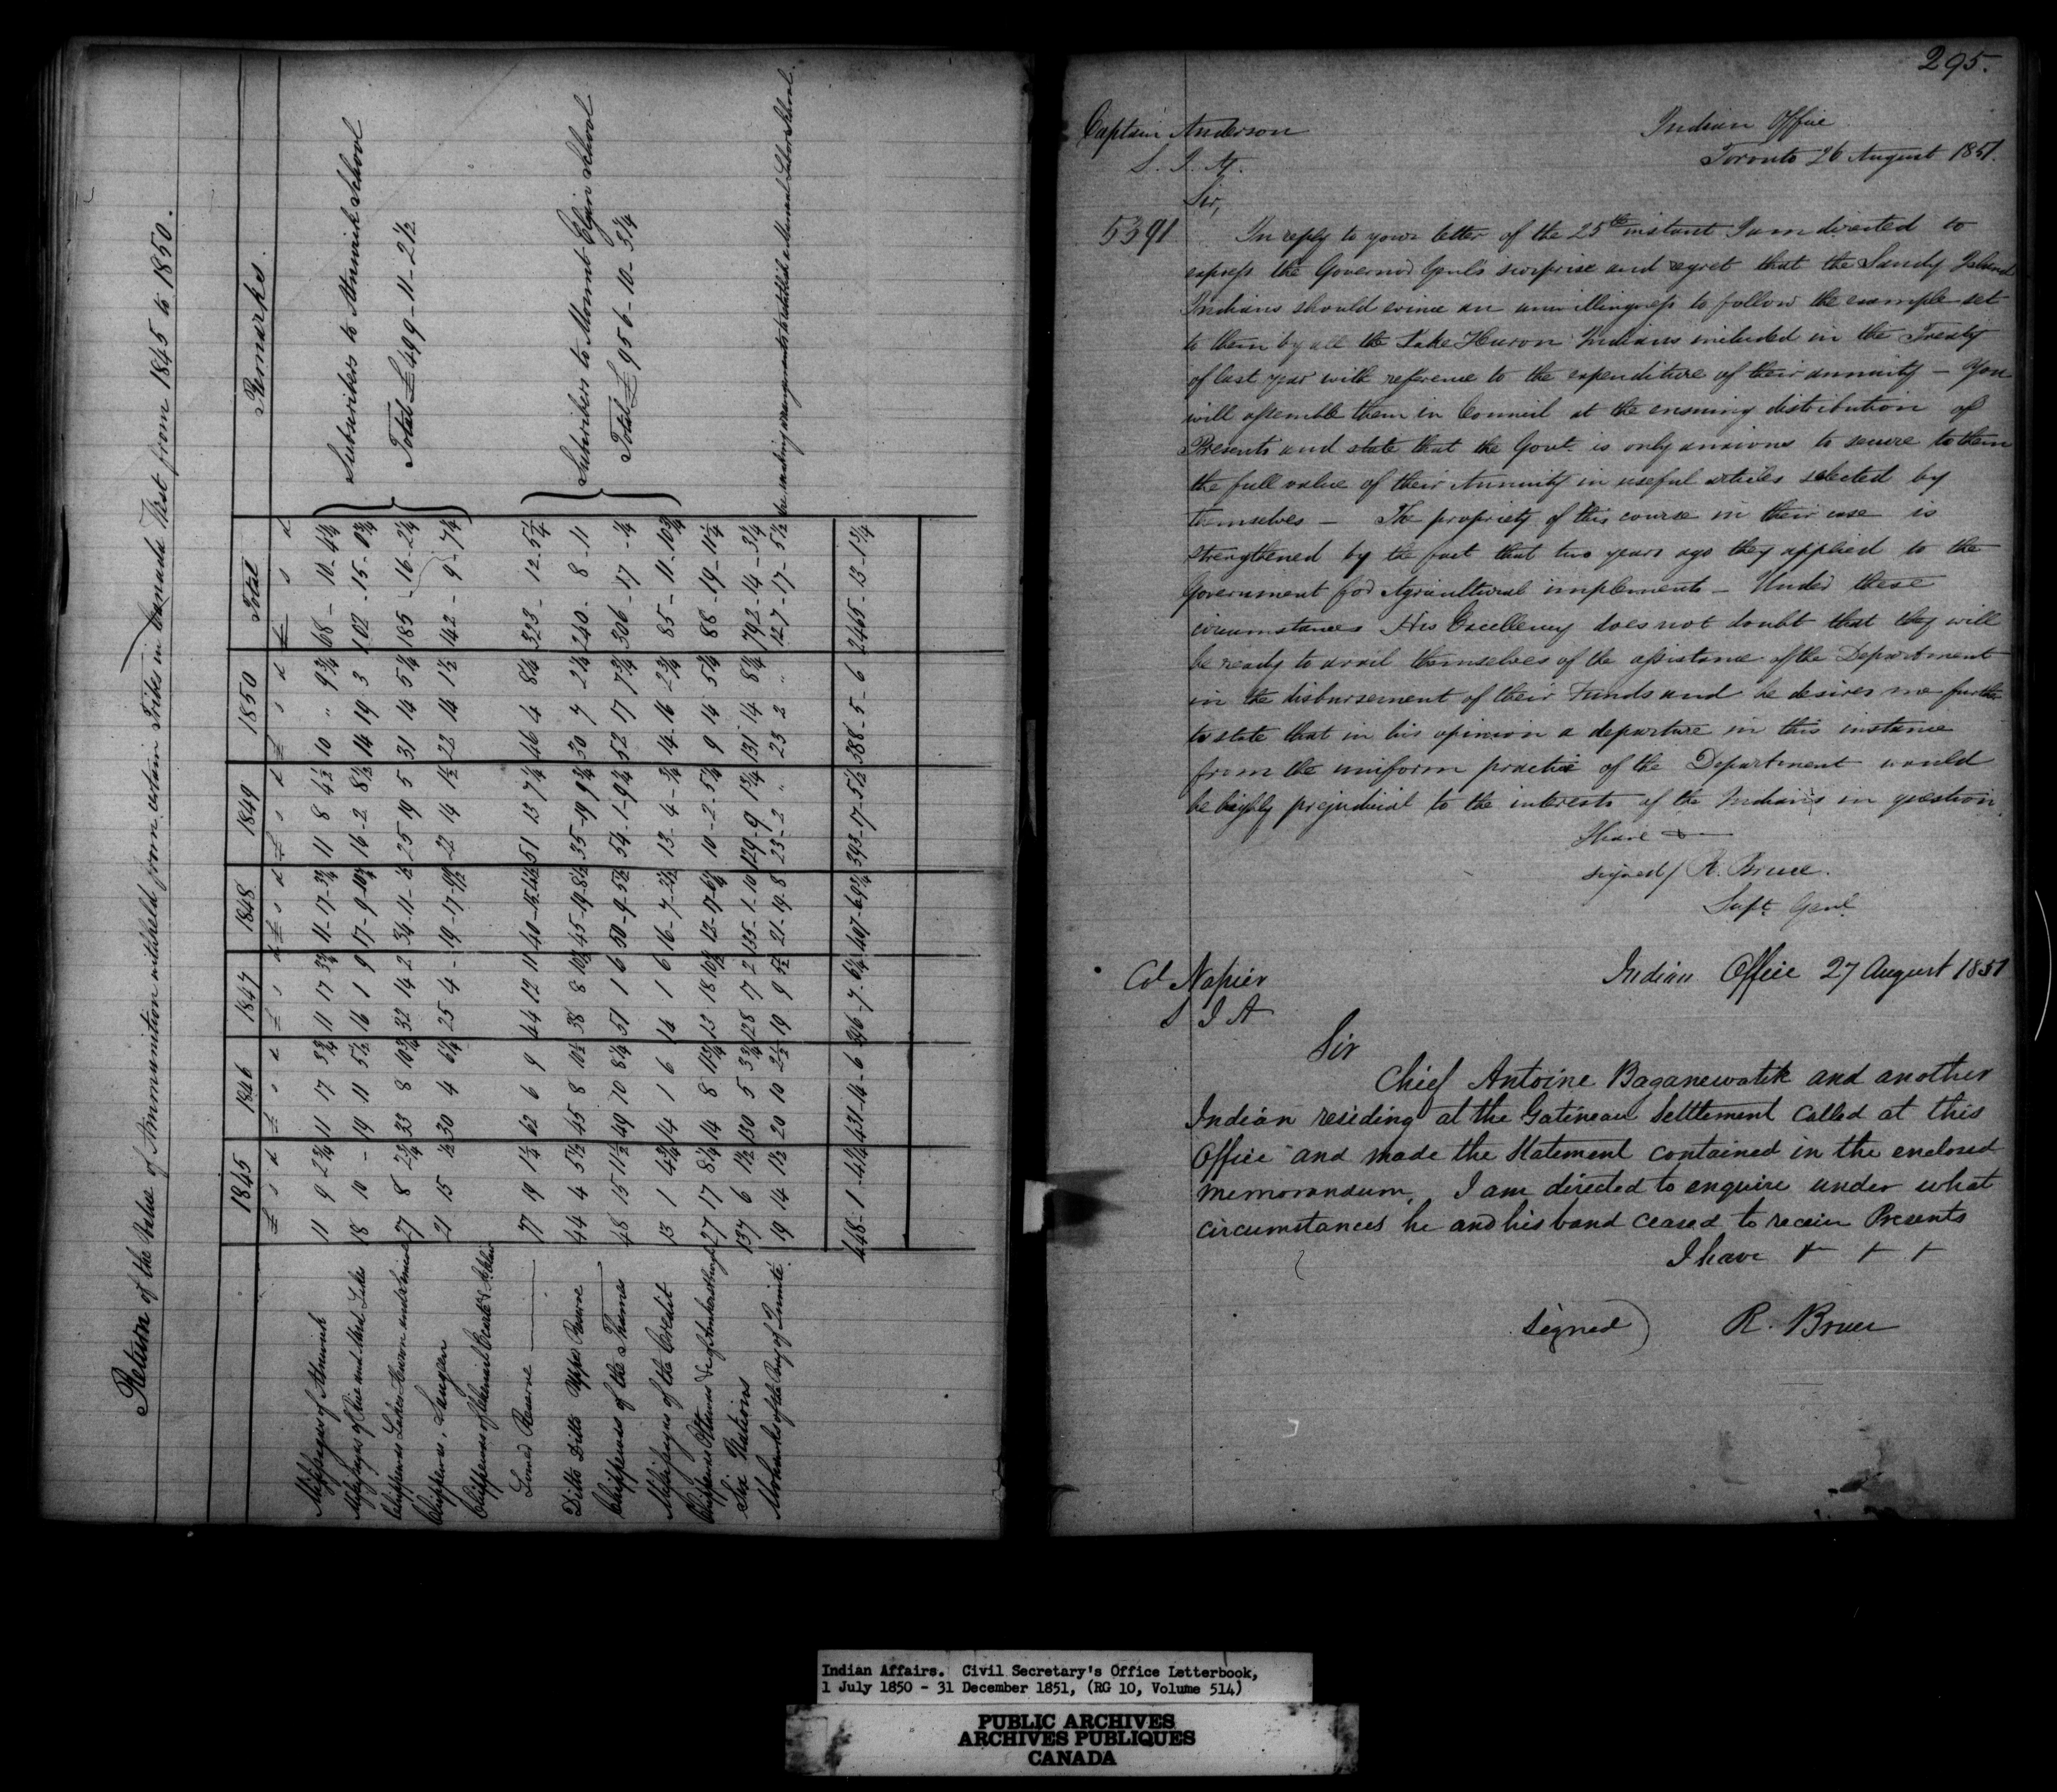 Return of the Value of Ammunition withheld from certain Tribes in Canada West from 1845 to 1850.
1845 1846 1847 1848 1849 1850 Total Remarks.
£ s d £ s d £ s d £ s d £ s d £ s d £ s d
Mississagas of Alnwick 11 9 2¾ 11 17 3¾ 11 17 3¾ 11-17-3¾ 11 8 4½ 10 " 9¾ 68-10-4¾
Mississagas of Rice and Mud Lake 18 10 - 19 11 5½ 16 1 9 17-9-10¾ 16-2 8½ 14 19 3 102-15-0¾
Chippewas Lakes Huron and Simcoe 27 8 2¾ 33 8 10¾ 32 14 2 34-11-½ 25 19 5 31 14 5¾ 185-16-2¼
Chippewas, Saugeen 21 15 ½ 30 4 6¼ 25 4 - 19-17-9½ 22 14 1½ 22 14 1½ 142-9-7¼
Chippewas of Chenail Ecarté & St. Clair
Lower Reserve 77 19 1½ 62 6 9 44 12 11 40-15-4½ 51 13 7¼ 46 4 8¼ 323-12-5½
Ditto Ditto Upper Reserve 44 4 5½ 45 8 10½ 38 8 10½ 45-19-8½ 35-19 9¾ 30 7 2½ 240-8-11
Chippewas of the Thames 48 15 11½ 49 10 8¼ 51 1 6 50-9-5½ 54-1-9¾ 52 17 7¾ 306-17-¼
Mississagas of the Credit 13 1 4¾ 14 1 6 14 1 6 16-7-2½ 13-4-¾ 14-16 2¾ 85-11-10¾
Chippewas Ottawas &c of Amherstburgh 27 17 8¼ 14 8 11¾ 13 18 10½ 13-17-6¼ 10-2-5¾ 9 14 5¾ 88-19-11¼
Six Nations 137 6 1½ 130 5 3¾ 128 7 2 135-1-10 129-9 1¾ 131 14 8¼ 792-14-3¼
Mohawks of the Bay of Quinté 19 14 1½ 20 10 2½ 19 9 5½ 21-19-8 23-2 " 23 2 " 127-17-5½
448-1-4¼ 431-14-6 396-7-6¼ 407-6-9¾ 393-17-5½ 388-5-6 2465-13-1¾
Subscribers to Alnwick School
Total £499-11-2½
Subscribers to Mount Elgin School
Total £956-10-3¼
are making arrangements to establish a Manual Labor School.
295.
Captain Anderson
S. I. A.
Indian Office
Toronto 26 August 1851.
Sir,
5391 In reply to your letter of the 25th instant I am directed to
express the Governor Genl's surprise and regret that the Sandy Island
Indians should evince an unwillingness to follow the example set
to them by all the Lake Huron Indians included in the Treaty
of last year with reference to the expenditure of their annuity - You
will assemble them in Council at the ensuing distribution of
Presents and state that the Govt. is only anxious to secure to them
the full value of their Annuity in useful articles selected by
themselves - The propriety of this course in their case is
strengthened by the fact that two years ago they applied to the
Government for Agricultural implements - Under these
circumstances His Excellency does not doubt that they will
be ready to avail themselves of the assistance of the Department
in the disbursement of their Funds and he desires me further
to state that in his opinion a departure in this instance
from the uniform practice of the Department would
be highly prejudicial to the interests of the Indians in question
I have &
signed/ R. Bruce.
Supt. Genl.
Col Napier
S I A
Indian Office 27 August 1851
Sir
Chief Antoine Baganewatik and another
Indian residing at the Gatineau Settlement called at this
Office and made the Statement contained in the enclosed
memorandum, I am directed to enquire under what
circumstances he and his band ceased to receive Presents
I have + + +
signed) R. Bruce
Indian Affairs. Civil Secretary's Office Letterbook,
1 July 1850 - 31 December 1851, (RG 10, Volume 514)
PUBLIC ARCHIVES
ARCHIVES PUBLIQUES
CANADA